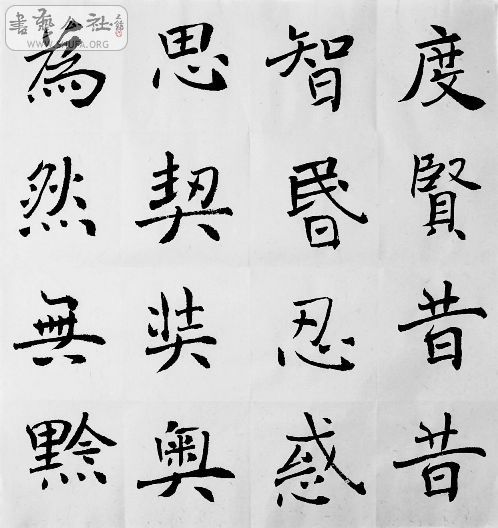 度賢昔昔
智昬忍惑
思契奘奥
為然無黔
書藝公社
WWW.SHUFA.ORG